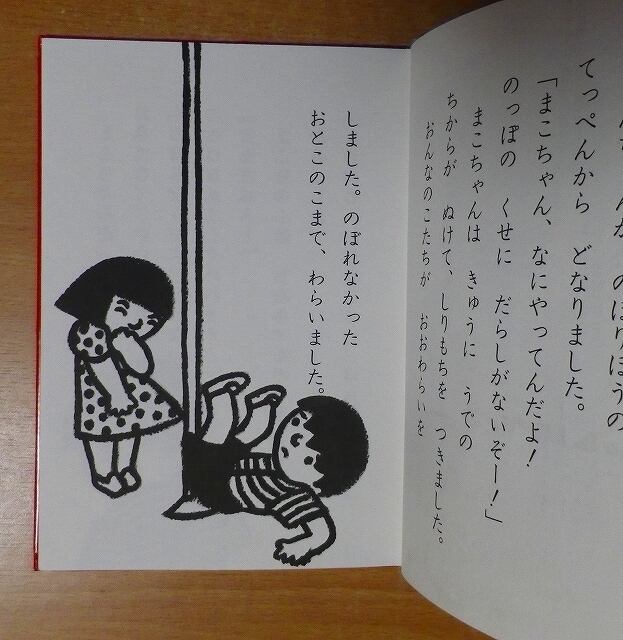 のぼりぼうの
てっぺんから　どなりました。
「まこちゃん、なにやってんだよ！
のっぽの　くせに　だらしがないぞー！」
まこちゃんは　きゅうに　うでの
ちからが　ぬけて、しりもちを　つきました。
おんなのこたちが　おおわらいを
しました。のぼれなかった
おとこのこまで、わらいました。